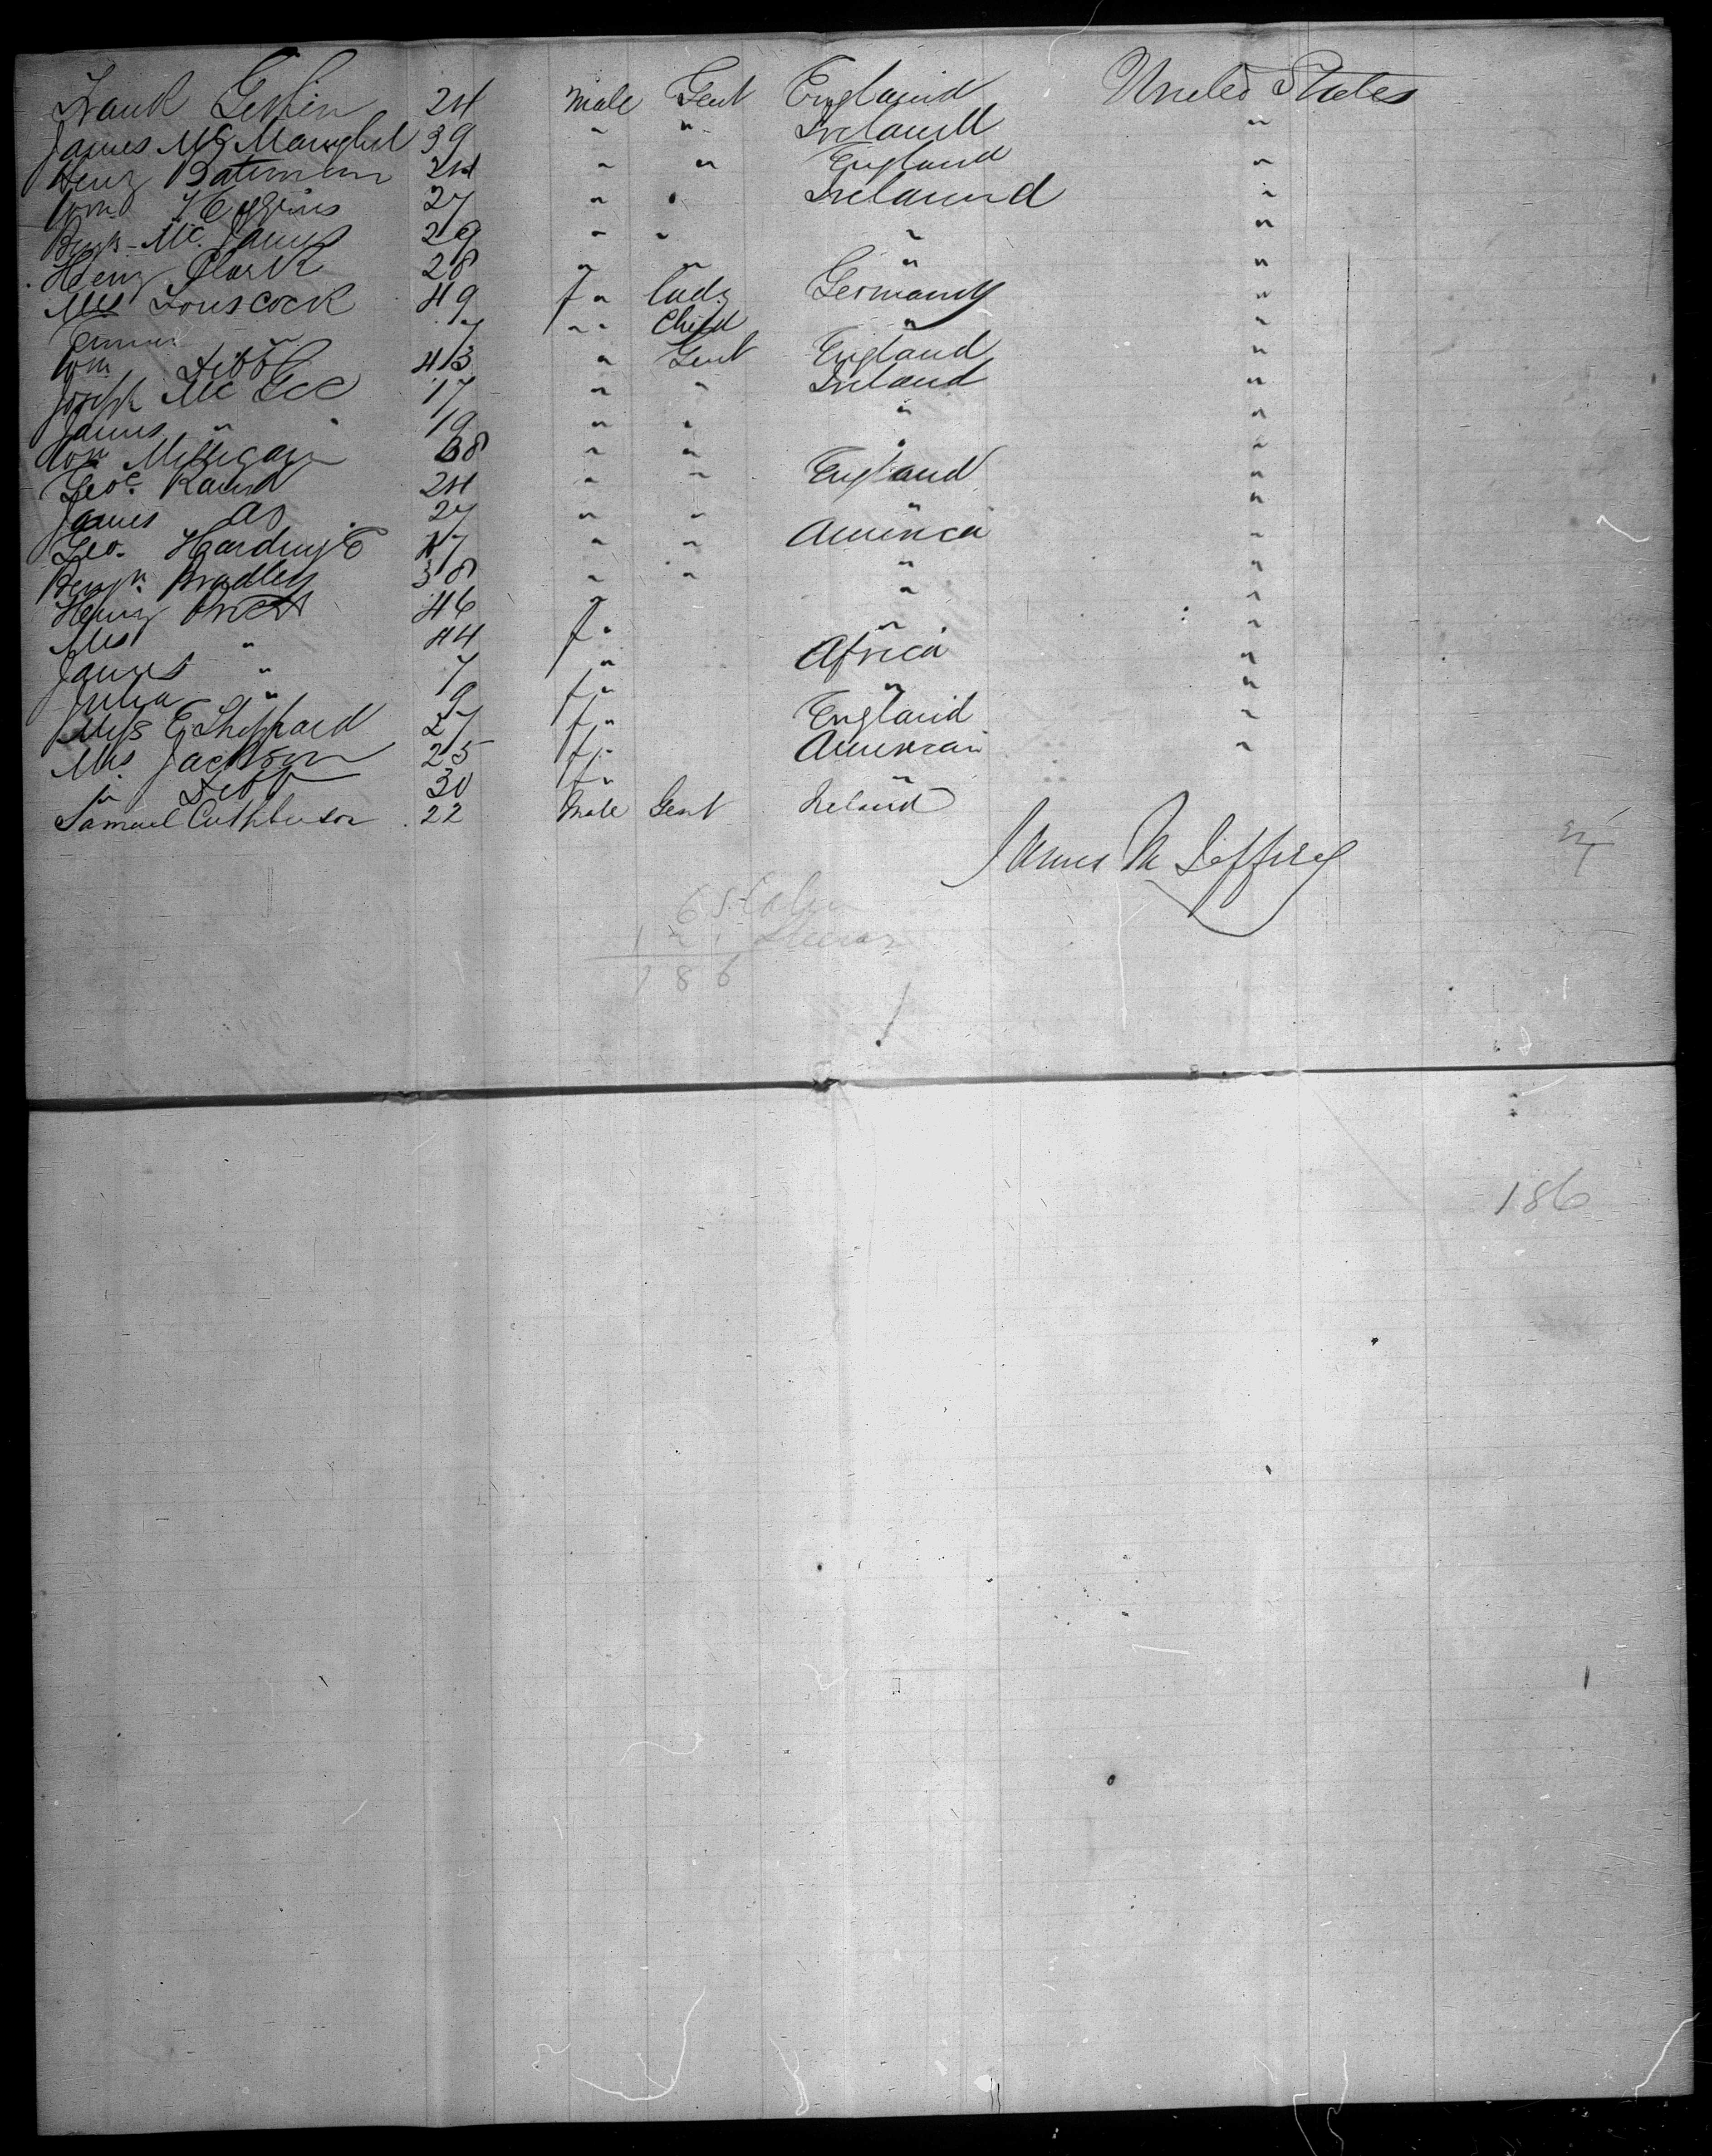 Frank Gerlin 24 Male Gent England United States
James Mc 39 " " Ireland "
Henry Bateman 24 " " England "
Wm Higgins 27 " " Ireland "
Benj- Mc. James 29 " " " "
Henry Clark 28 " " " "
Mrs Louscock 49 f " lady Germany "
Emma " 7 " " Child " "
Wm 43 " Gent England "
Joseph Mc Gee 17 " " Ireland "
James " 19 " " " "
Wm Milligan 38 " " " "
Geo. Rand 24 " " England "
James do 27 " " " "
Geo. Harding 47 " " America "
Benjn. Bradley 38 " " " "
Henry Price 46 " " "
Mrs " 44 f " " "
James " 7 " Africa "
Julia " 9 f " " "
Miss E Sheppard 27 f " England "
Mrs. Jackson 25 f " American "
" 30 f " "
Samuel Cuthbertson 22 Male Gent Ireland
James M Jeffrey
65 Cabin
121 Steerage
186
186